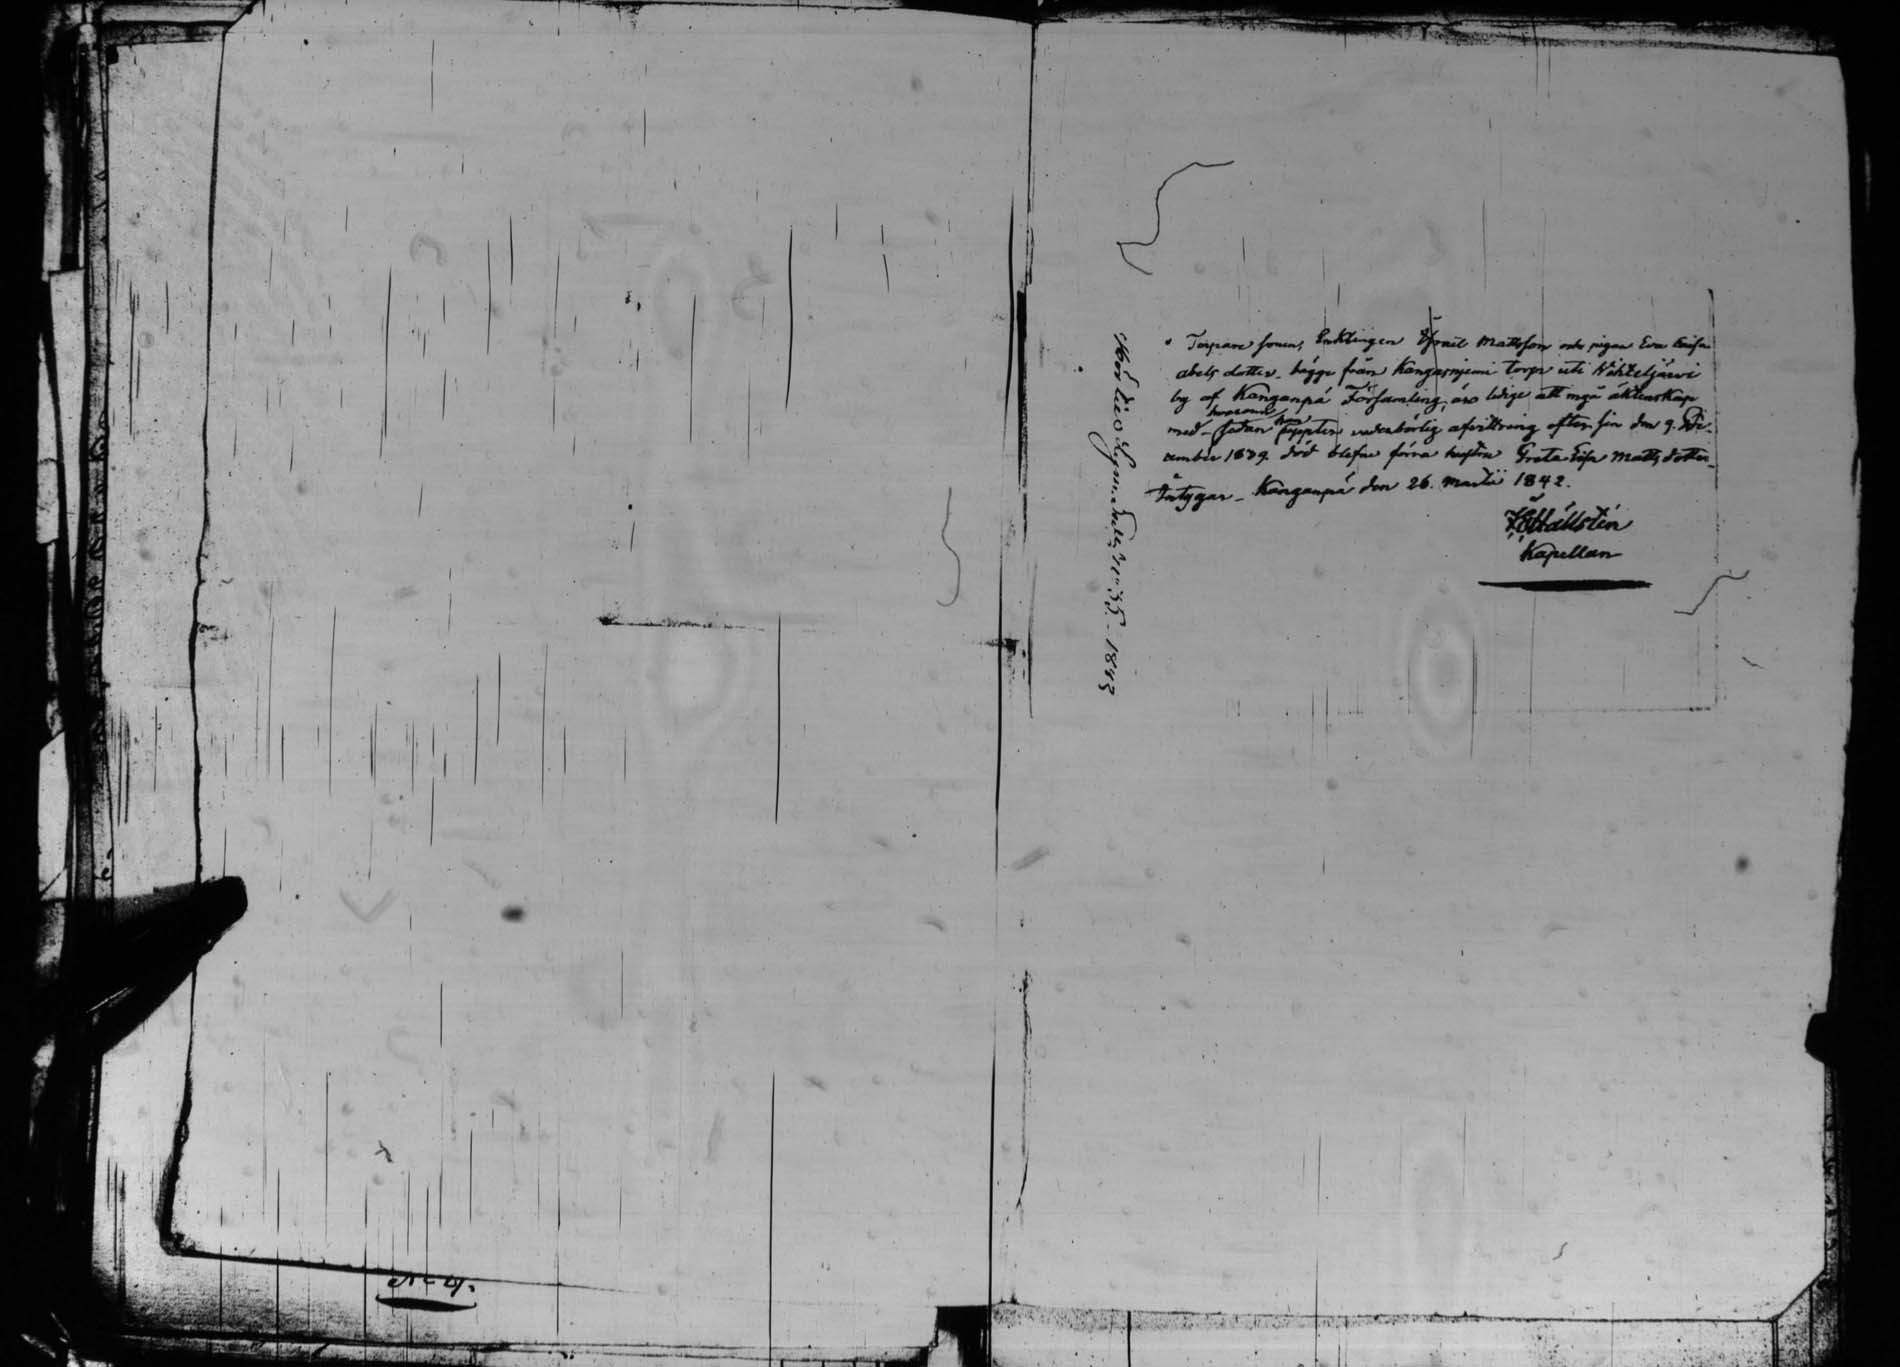 Torpare sonen, Enklingen Israel Mattsson och pigan Eva Caisa
Abels dotter bägge från Kangasniemi torp uti Wihteljärvi
by af Kanganpä Församling, äro ledige att ingå äktenskap
med hvarannan sedan han upptett vederbörlig afvittring efter sin den 9. De-
cember 1839. död blefne förra hustru Greta Lisa Matts dotter
Intygar Kanganpä den 26. Martii 1842.
Hällstén
Kapellan
No 35. 1843
No 4.